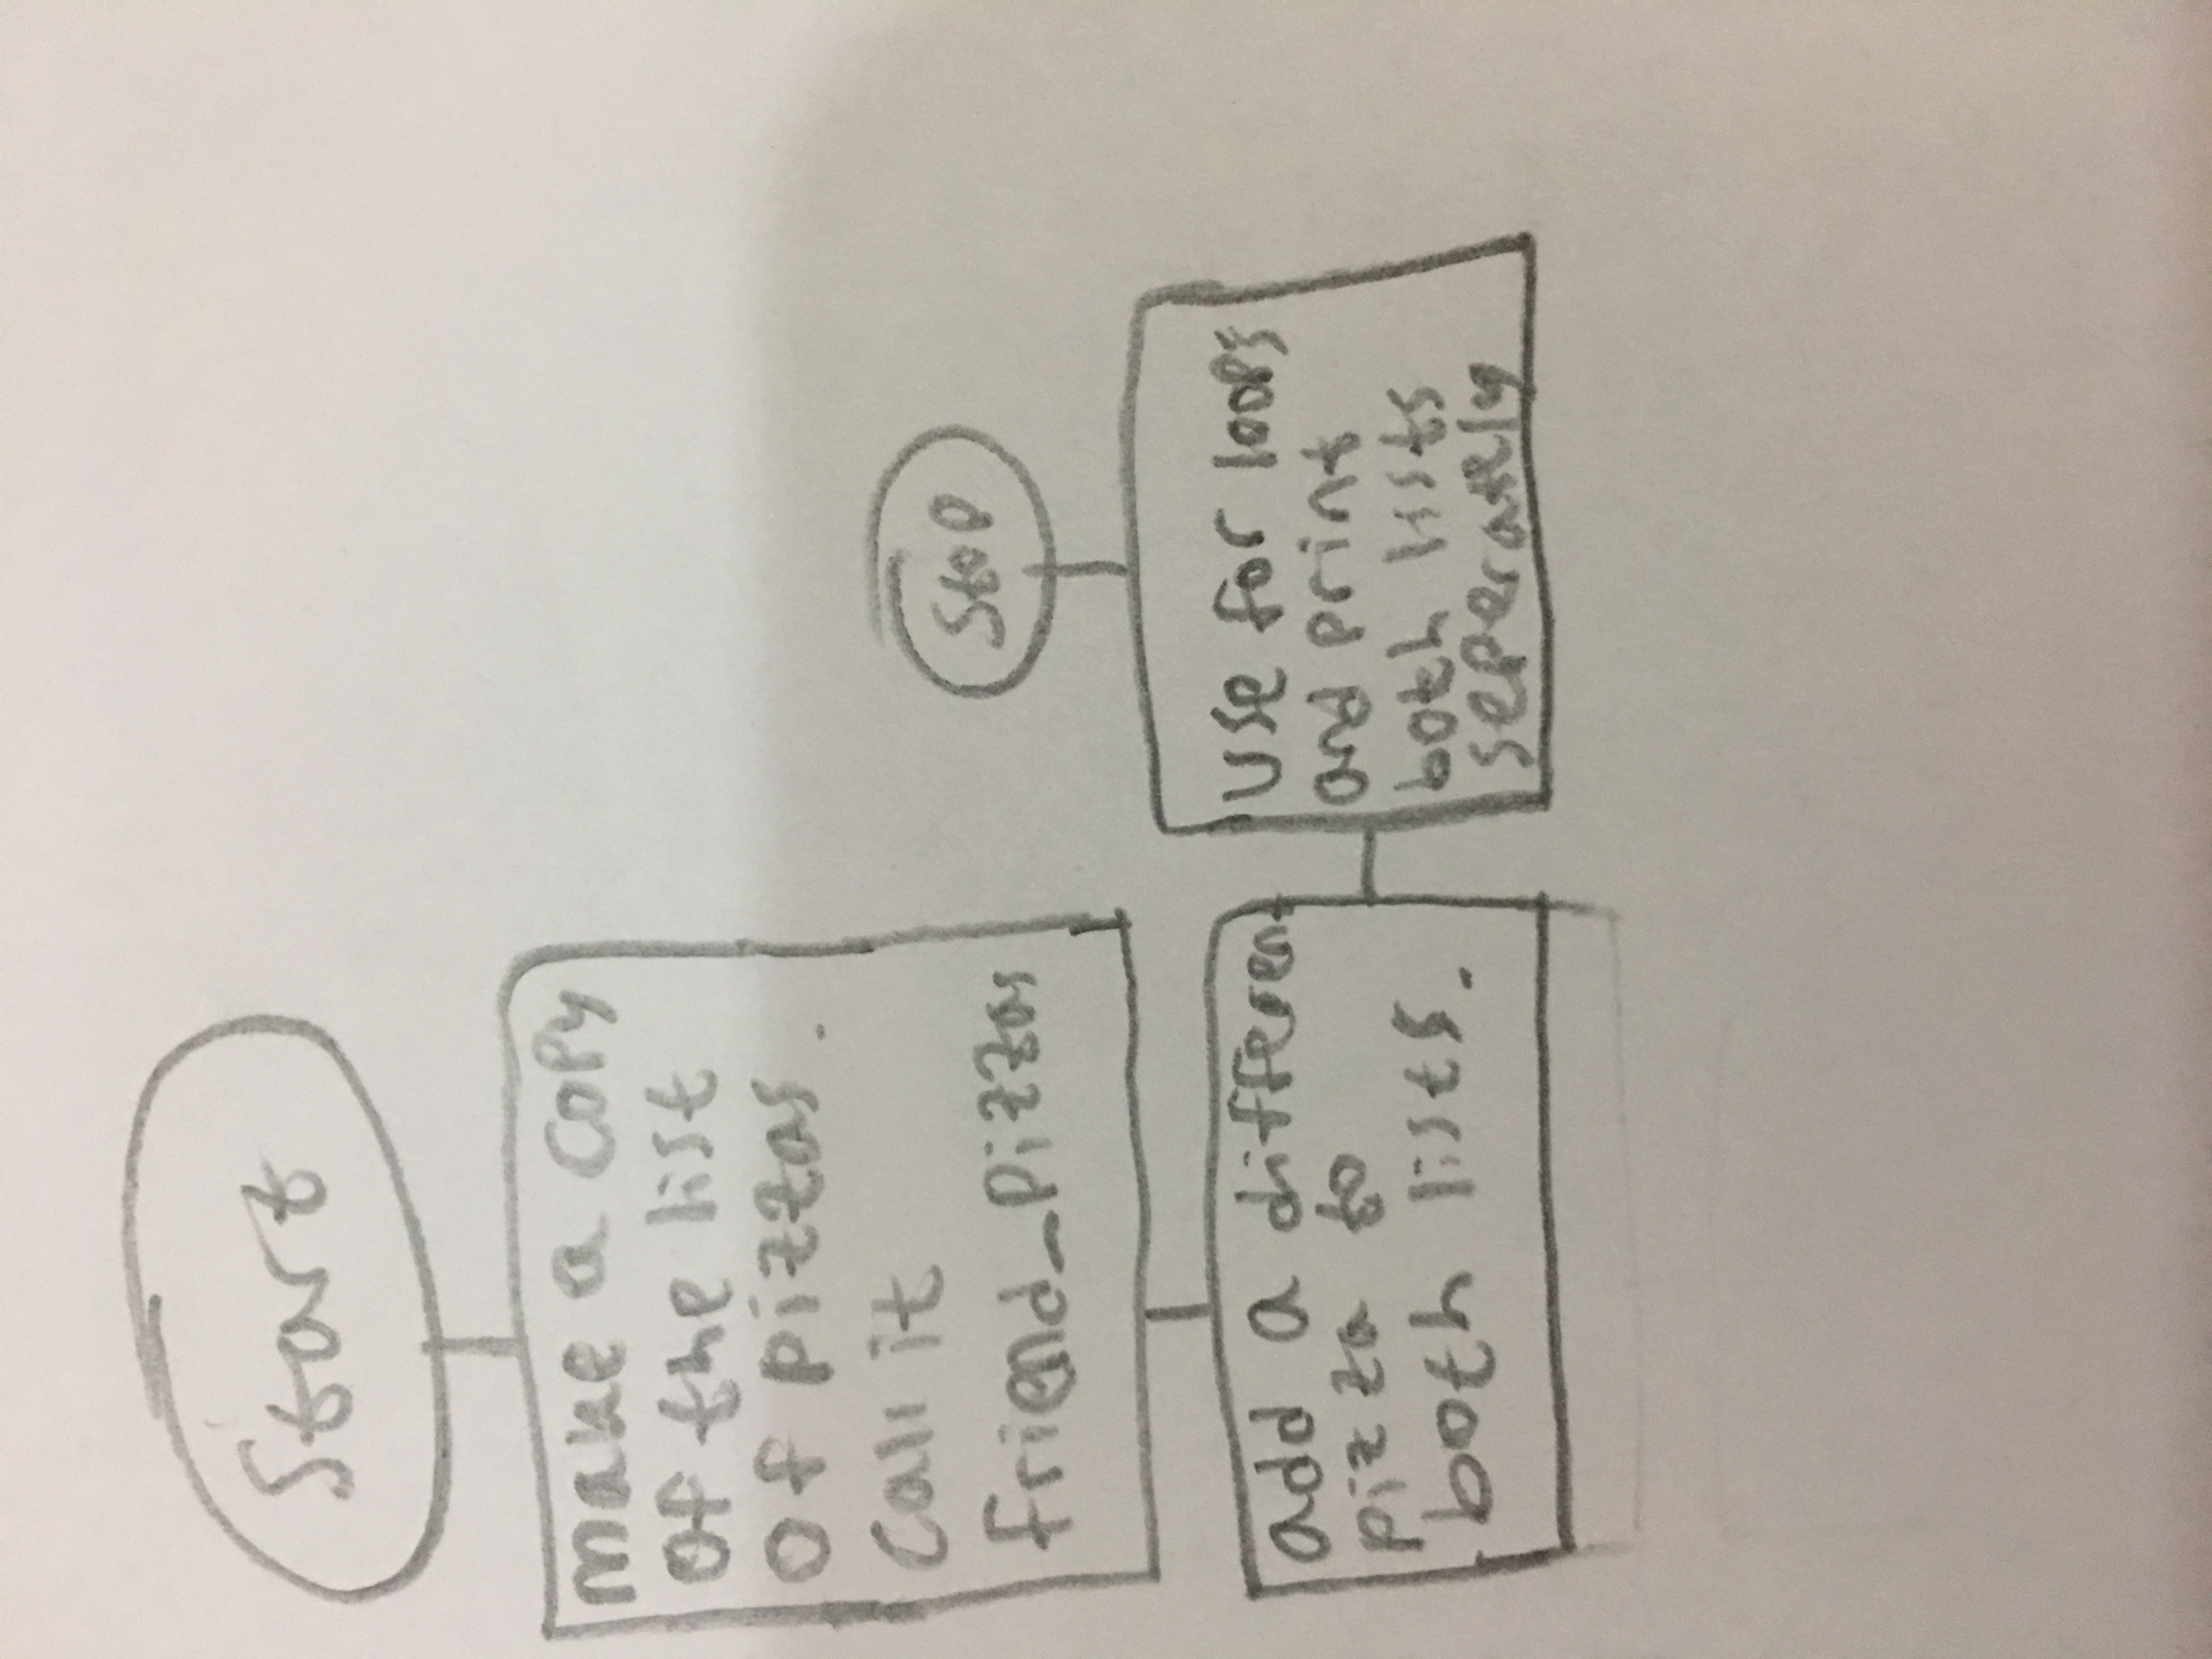 Start
make a copy
of the list
of pizzas.
Call it
friend_pizzas
add a different
pizza to
both lists.
use for loops
and print
both lists
seperately
Stop